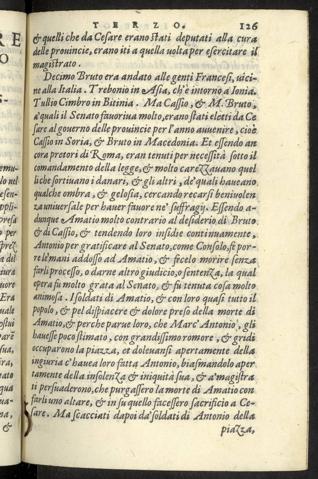 TERZO. 126
& quelli che da Cesare erano stati deputati alla cura
delle prouincie, erano iti a quella uolta per esercitare il
magistrato.
Decimo Bruto era andato alle genti Francesi, uici-
ne alla Italia. Trebonio in Asia, ch'è intorno a Ionia.
Tullio Cimbro in Bitinia. Ma Cassio, & M. Bruto,
a' quali il Senato fauoriua molto, erano stati eletti da Ce
sare al gouerno delle prouincie per l'anno auuenire, cioè
Cassio in Soria, & Bruto in Macedonia. Et essendo an
cora pretori di Roma, eran tenuti per necessità sotto il
commandamento della legge, & molto carezzauano quel
li che sortiuano i danari, & gli altri, de' quali haueano
qualche ombra, & gelosia, cercando recarsi beniuolen-
za uniuersale per hauer fauore ne' suffragij. Essendo a-
dunque Amatio molto contrario al desiderio di Bruto
& di Cassio, & tendendo loro insidie continuamente,
Antonio per gratificare al Senato, come Consolo, fè por-
re le mani addosso ad Amatio, & fecelo morire senza
farli processo, o darne altro giudicio, o sentenza, la qual
opera fu molto grata al Senato, & fu tenuta cosa molto
animosa. I soldati di Amatio, & con loro quasi tutto il
popolo, & pel dispiacere & dolore preso della morte di
Amatio, & perche parue loro, che Marc' Antonio, gli
hauesse poco stimato, con grandissimo romore, & gridi
occuparono la piazza, et doleuansi apertamente della
ingiuria c'hauea loro fatta Antonio, biasmandolo aper
tamente della insolenza & iniquità sua, & a' magistra
ti persuaderono, che purgassero la morte di Amatio con
farli uno altare, & in su quello facessero sacrificio a Ce-
sare. Ma scacciati dapoi da' soldati di Antonio della
piazza,